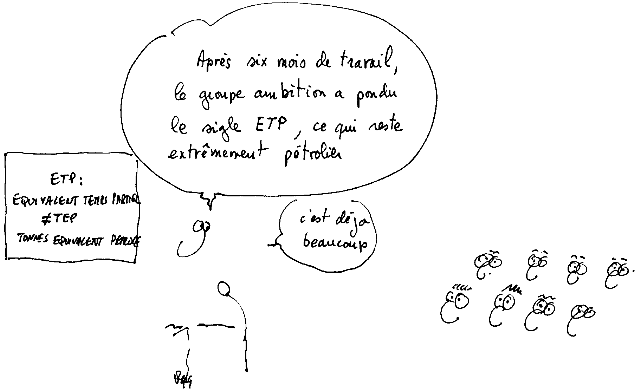 Après six mois de travail,
le groupe ambition a pondu
le sigle ETP, ce qui reste
extrêmement pétrolier
ETP:
EQUIVALENT TEMPS PARTIEL
≠ TEP
TONNES EQUIVALENT PETROLE
c'est déjà
beaucoup